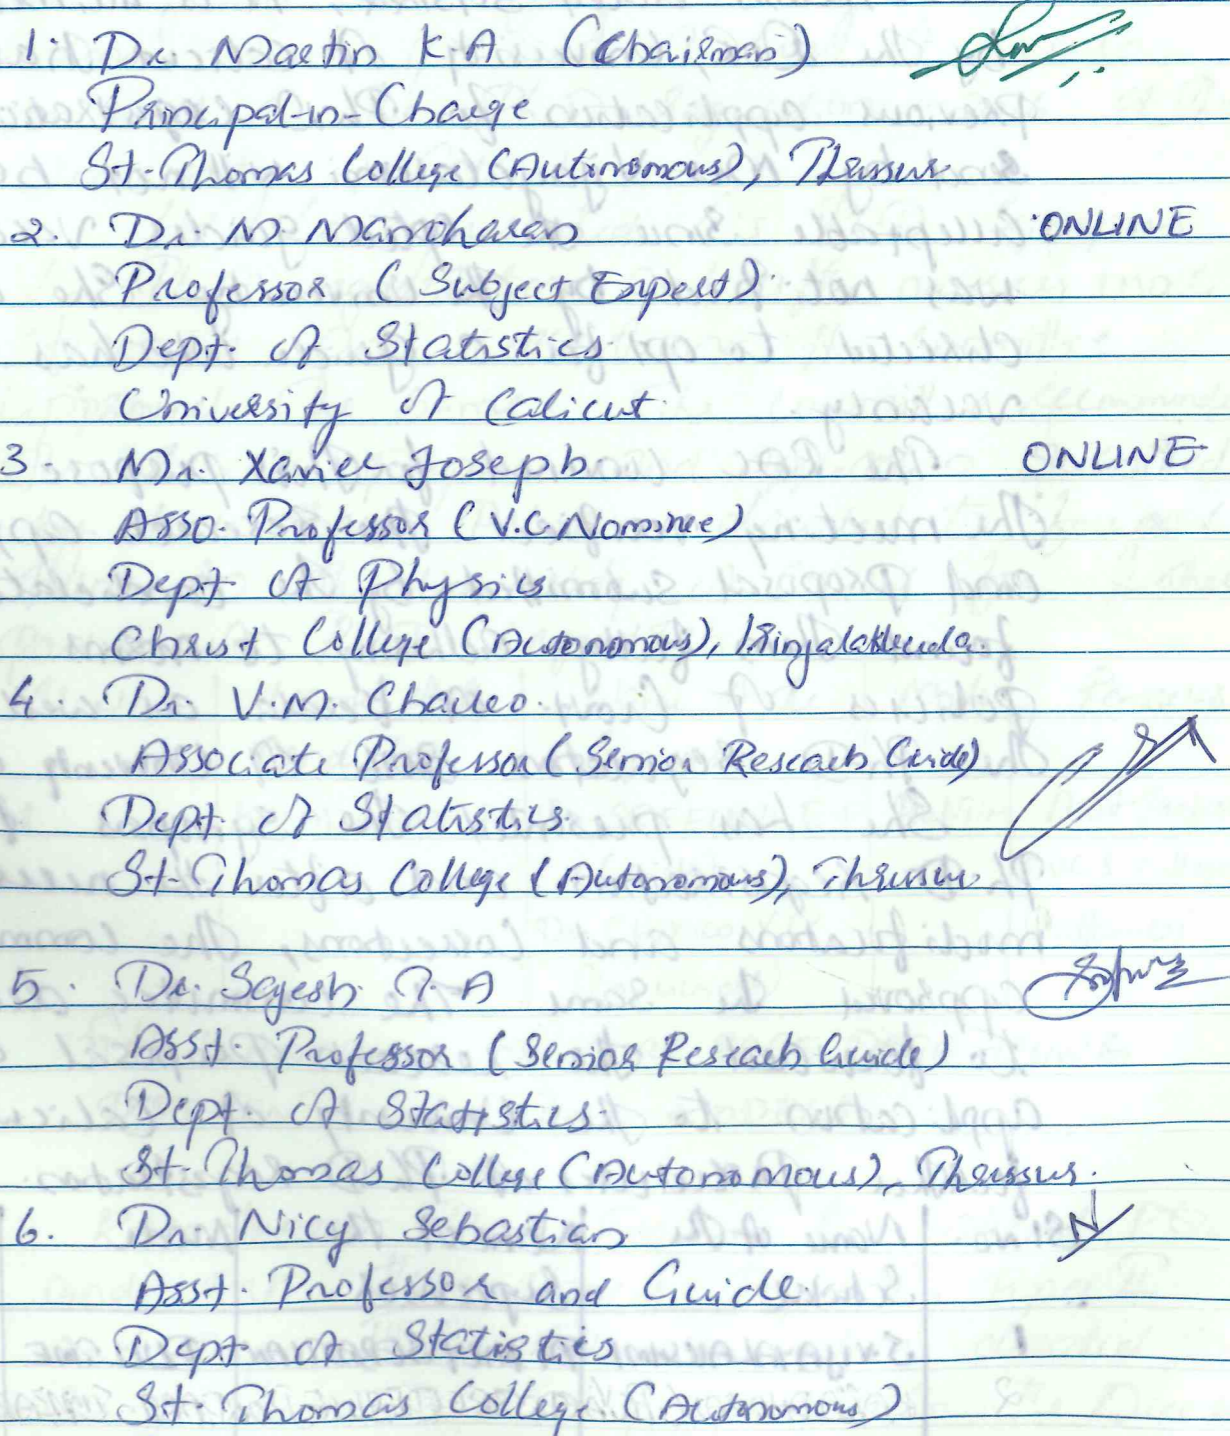 1. Dr. Martin K.A (Chairman)
Principal-in-Charge
St. Thomas College (Autonomous), Thrissur.
2. Dr. M. Manoharan ONLINE
Professor (Subject Expert).
Dept. of Statistics.
University of Calicut.
3. Mr. Xavier Joseph ONLINE
Asso. Professor (V.C Nominee)
Dept of Physics
Christ College (Autonomous), Irinjalakkuda.
4. Dr. V.M. Chacko.
Associate Professor (Senior Research Guide)
Dept. of Statistics.
St. Thomas College (Autonomous), Thrissur
5. Dr. Sajesh T.A
Asst. Professor (Senior Research Guide)
Dept. of Statistics.
St. Thomas College (Autonomous), Thrissur.
6. Dr. Nicy Sebastian
Asst. Professor and Guide.
Dept of Statistics
St. Thomas College (Autonomous)